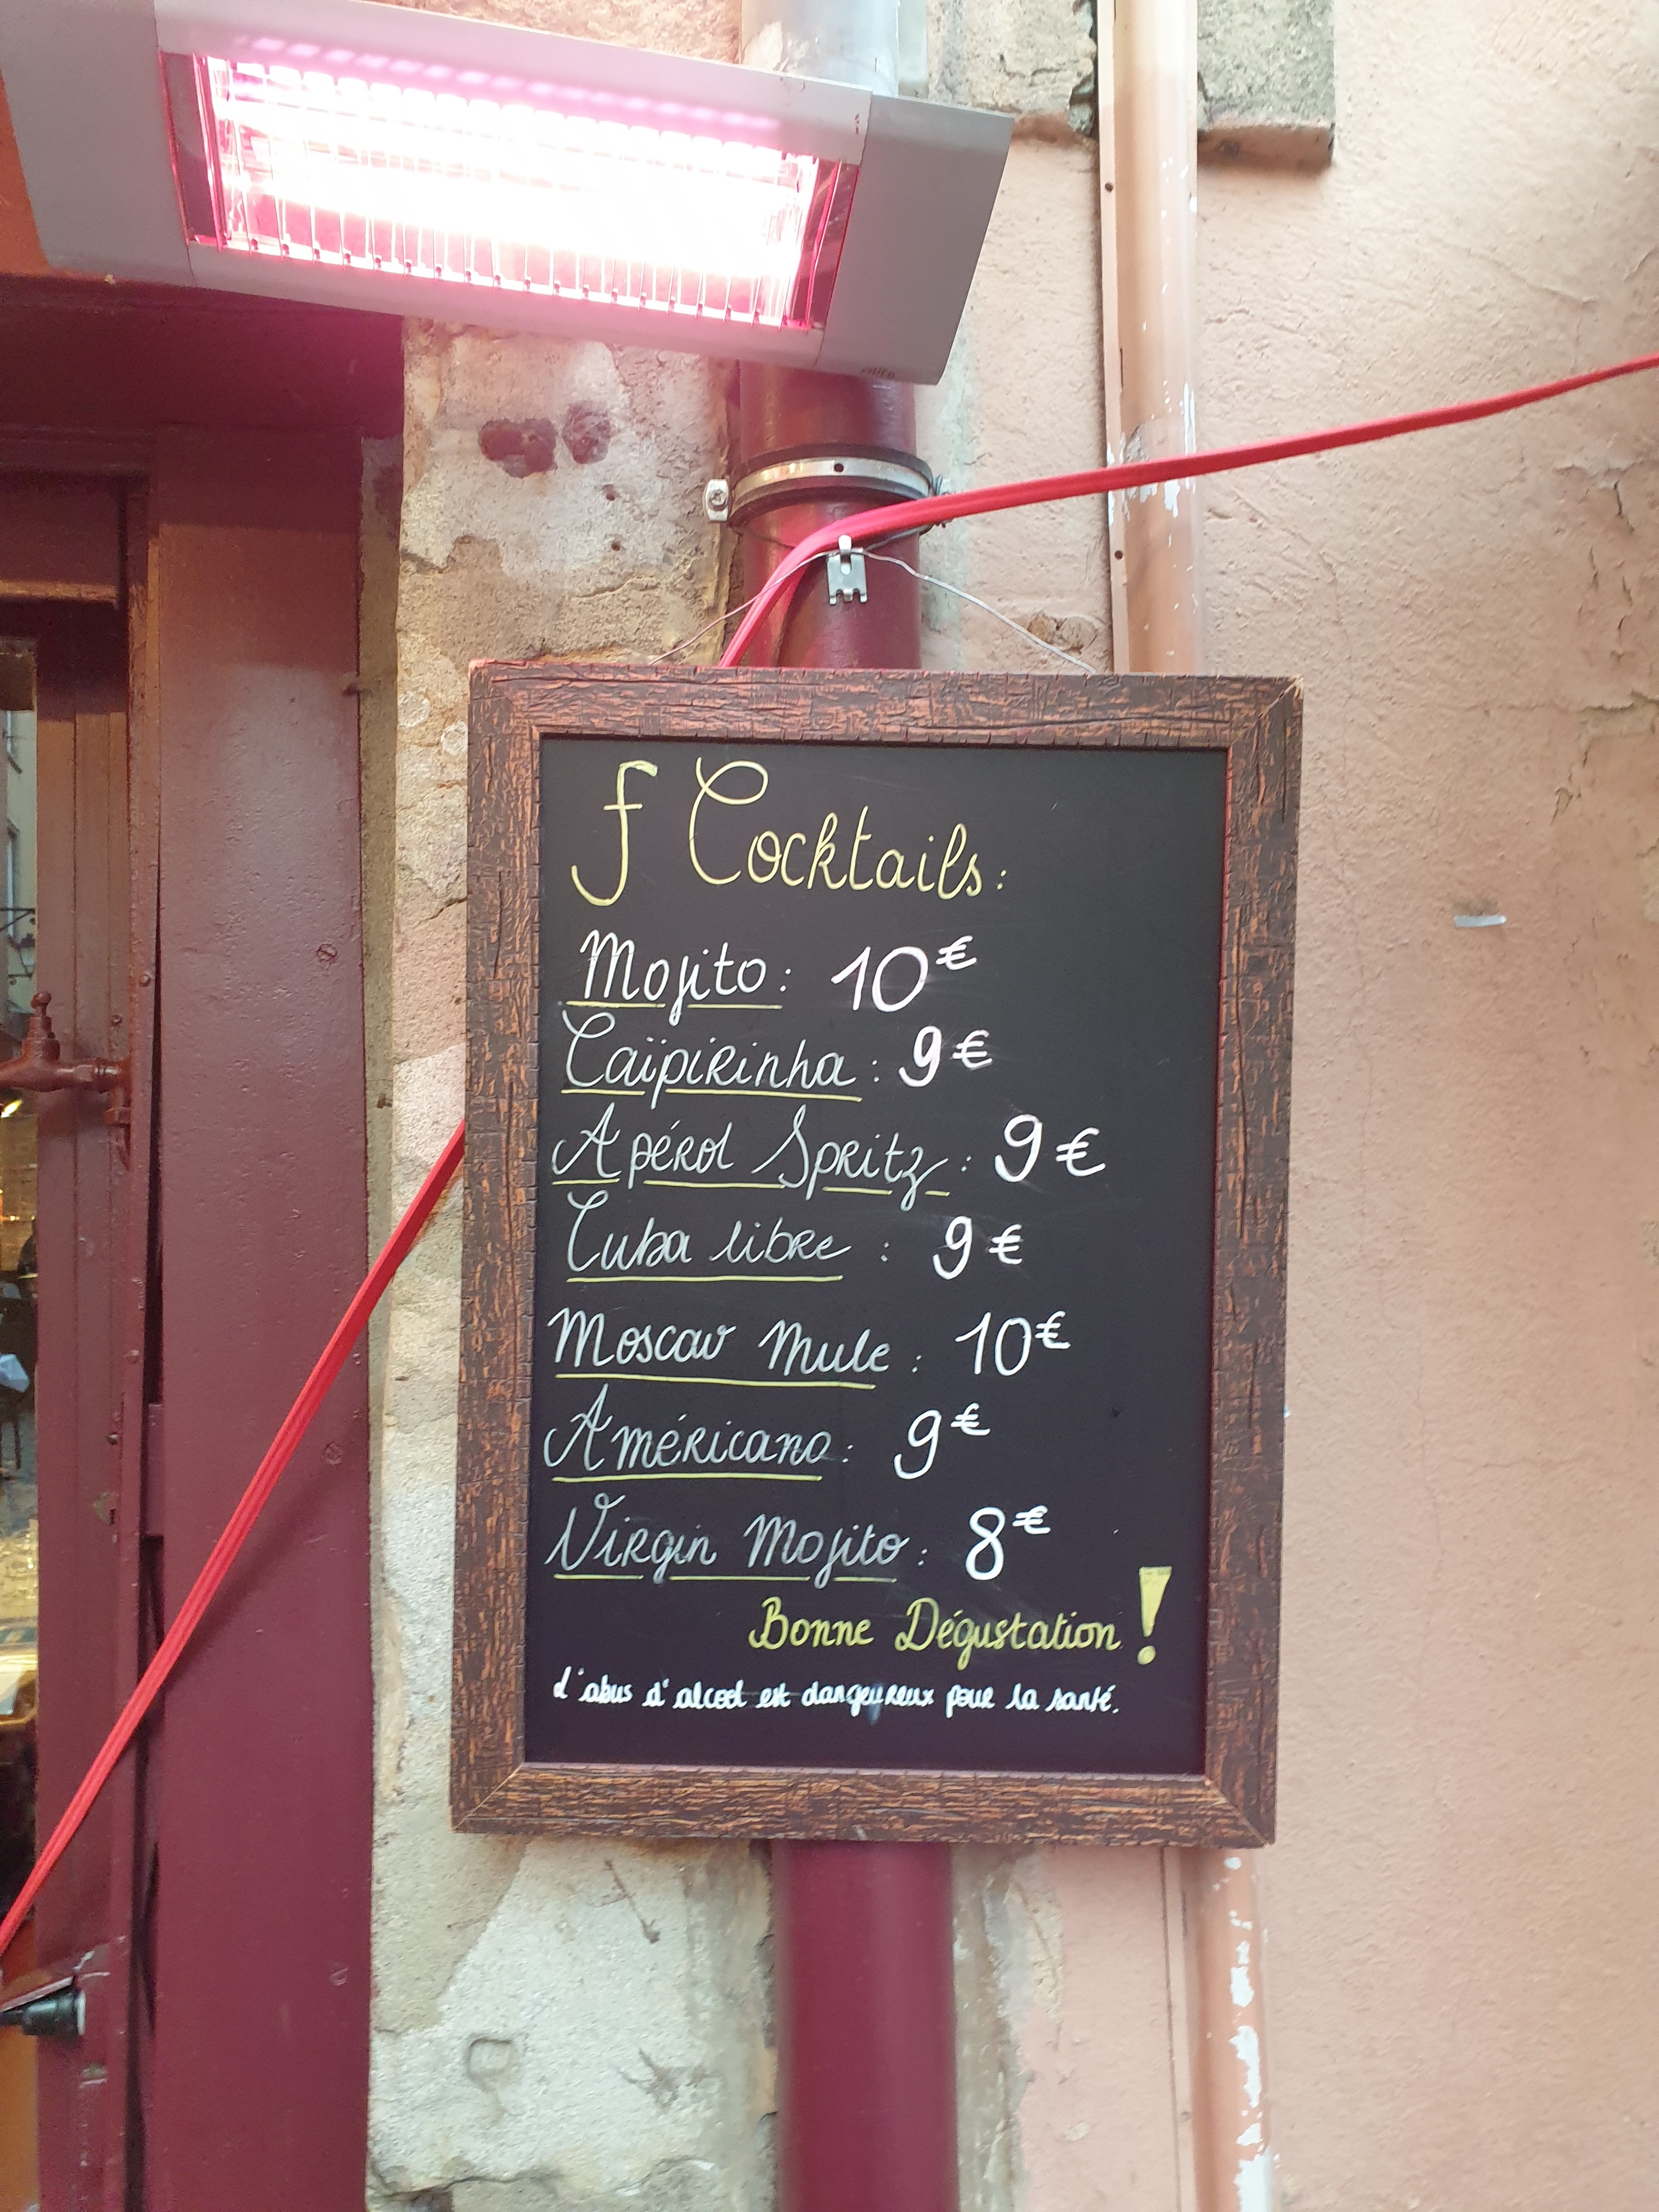 f Cocktails:
Mojito: 10€
Caïpirinha: 9€
Apérol Spritz: 9€
Cuba libre: 9€
Moscow Mule: 10€
Américano: 9€
Virgin Mojito: 8€
Bonne Dégustation!
L'abus d'alcool est dangeureux pour la santé.